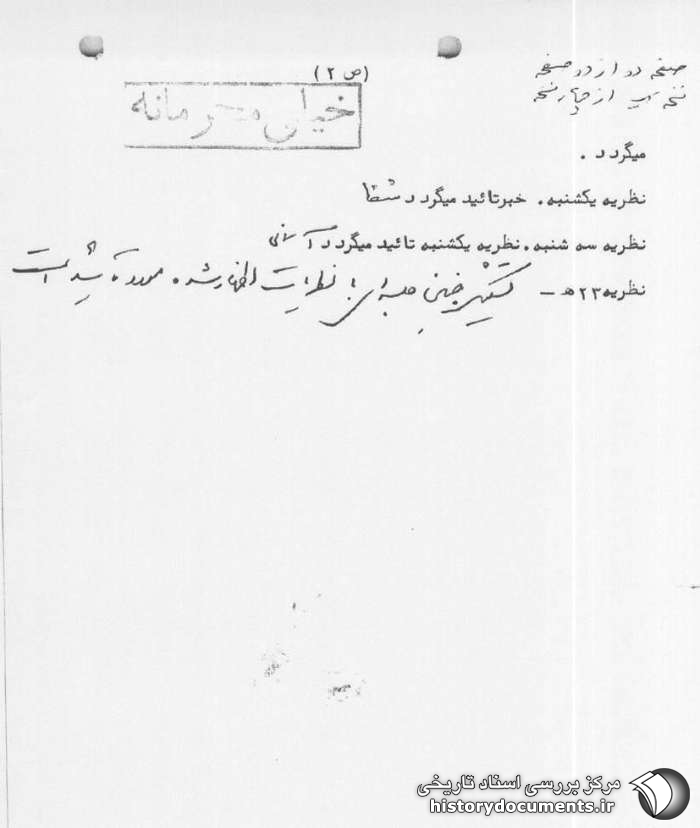 (ص ۲)
صفحه دو از دو صفحه
نسخه از چهار نسخه
خیلی محرمانه
میگردد .
نظریه یکشنبه . خبر تائید میگردد شفقا
نظریه سه شنبه . نظریه یکشنبه تائید میگردد
نظریه ۲۳ هـ – تشکیل چنین جلسه‌ای با نظریات اظهار شده مورد تائید است
مرکز بررسی اسناد تاریخی
historydocuments.ir